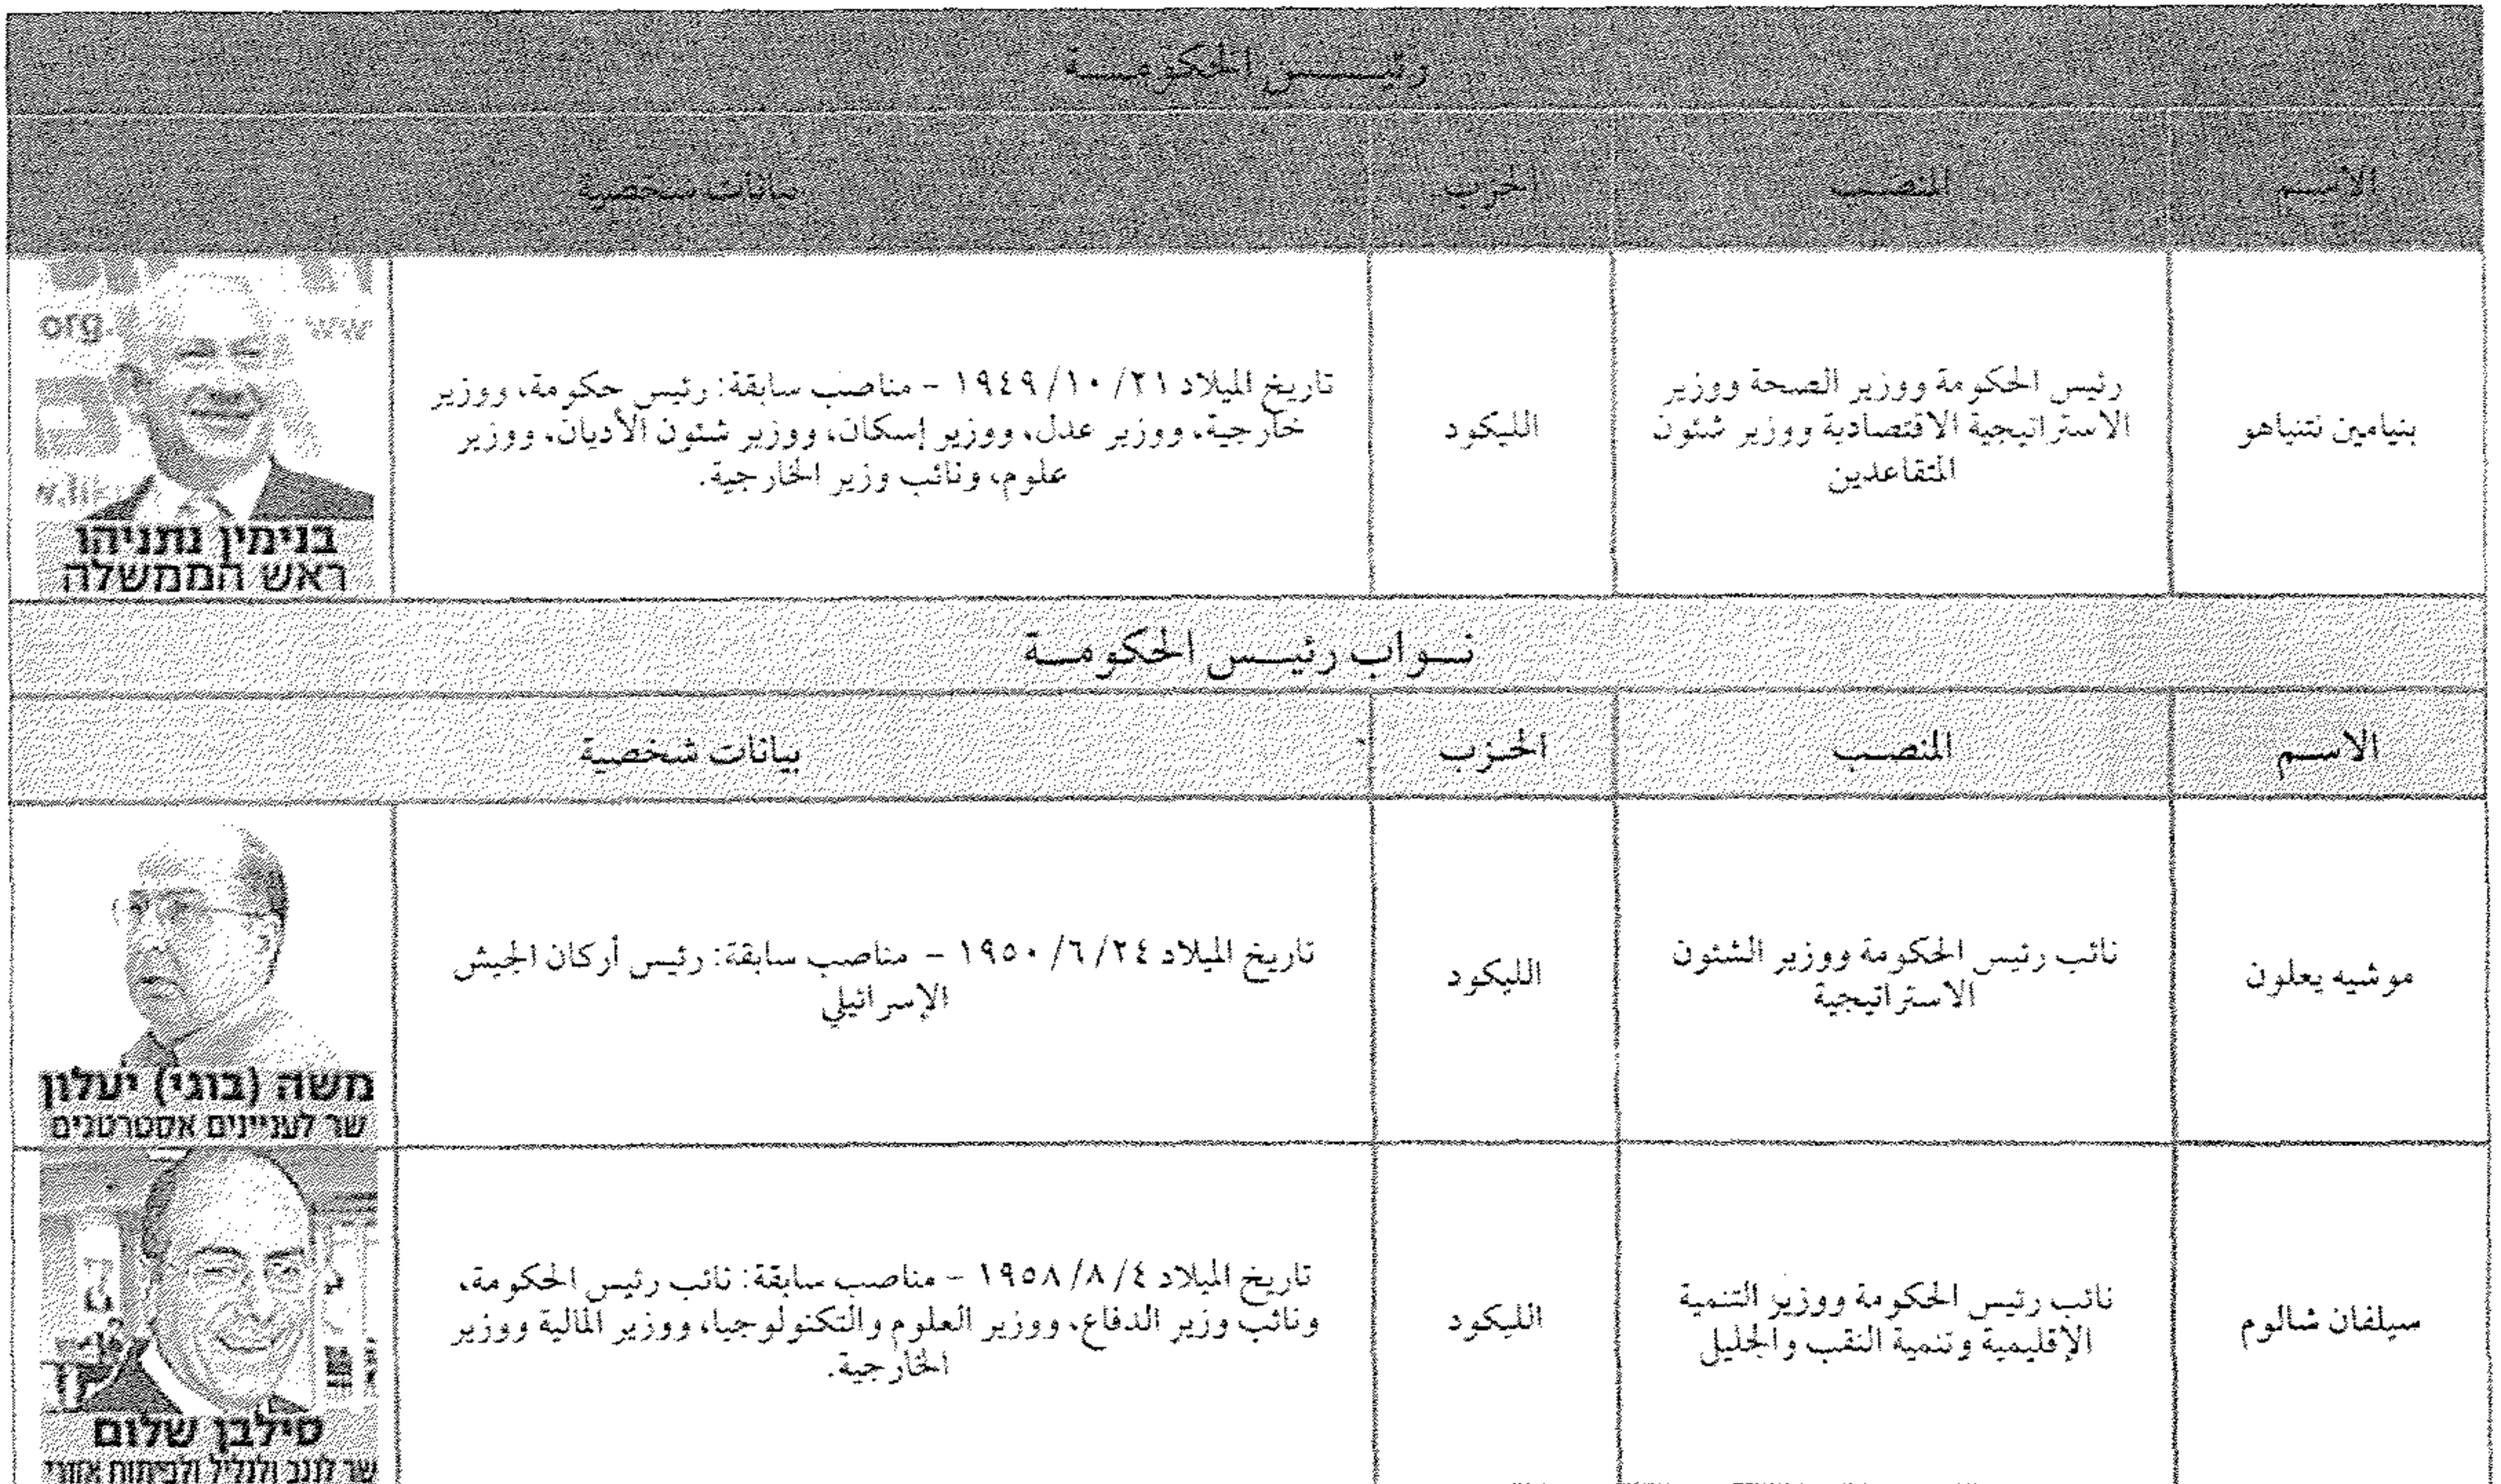 رئيس الحكومة
الاسم
المنصب
الحزب
بيانات شخصية
بنيامين نتنياهو
رئيس الحكومة ووزير الصحة ووزير
الاستراتيجية الاقتصادية ووزير شئون
المتقاعدين
الليكود
تاريخ الميلاد ٢١/ ١٠/ ١٩٤٩ - مناصب سابقة: رئيس حكومة، ووزير
خارجية، ووزير عدل، ووزير إسكان، ووزير شئون الأديان، ووزير
علوم، ونائب وزير الخارجية.
org.
ww
w.li
בנימין נתניהו
ראש הממשלה
نواب رئيس الحكومة
الاسم
المنصب
الحزب
بيانات شخصية
موشيه يعلون
نائب رئيس الحكومة ووزير الشئون
الاستراتيجية
الليكود
تاريخ الميلاد ٢٤/ ٦/ ١٩٥٠ - مناصب سابقة: رئيس أركان الجيش
الإسرائيلي
משה (בוגי) יעלון
שר לעניינים אסטרטגים
سيلفان شالوم
نائب رئيس الحكومة ووزير التنمية
الإقليمية وتنمية النقب والجليل
الليكود
تاريخ الميلاد ٤/ ٨/ ١٩٥٨ - مناصب سابقة: نائب رئيس الحكومة،
ونائب وزير الدفاع، ووزير العلوم والتكنولوجيا، ووزير المالية ووزير
الخارجية.
סילבן שלום
שר לנגב ולגליל ולפיתוח אזורי